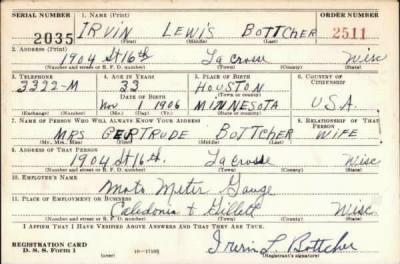 SERIAL NUMBER 1. NAME (Print) ORDER NUMBER
2035 IRVIN LEWIS BOTTCHER 2511
(First) (Middle) (Last)
2. ADDRESS (Print)
1904 St 16th La crosse Wisc
(Number and street or R. F. D. number) (Town) (County) (State)
3. TELEPHONE 4. AGE IN YEARS 5. PLACE OF BIRTH 6. COUNTRY OF CITIZENSHIP
3322-M 33 HOUSTON
DATE OF BIRTH (Town or county)
Nov 1 1906 MINNESOTA U.S.A.
(Exchange) (Number) (Mo.) (Day) (Yr.) (State or country)
7. NAME OF PERSON WHO WILL ALWAYS KNOW YOUR ADDRESS 8. RELATIONSHIP OF THAT PERSON
MRS GERTRUDE BOTTCHER WIFE
(Mr., Mrs., Miss) (First) (Middle) (Last)
9. ADDRESS OF THAT PERSON
1904 St 16th. La crosse Wisc
(Number and street or R. F. D. number) (Town) (County) (State)
10. EMPLOYER'S NAME
Moto Meter Gauge
11. PLACE OF EMPLOYMENT OR BUSINESS
Caledonia & Gillett Wisc
(Number and street or R. F. D. number) (Town) (County) (State)
I AFFIRM THAT I HAVE VERIFIED ABOVE ANSWERS AND THAT THEY ARE TRUE.
REGISTRATION CARD
D. S. S. Form 1 (over) Irvin L Bottcher
(Registrant's signature)